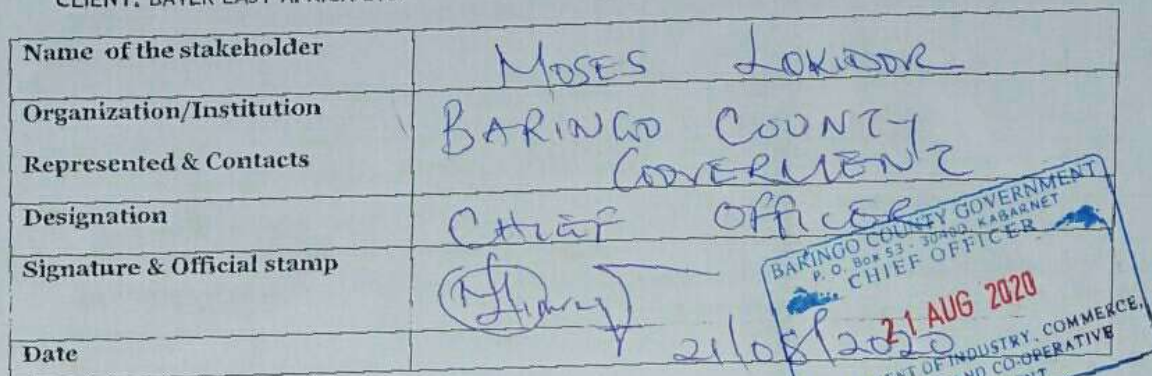 CLIENT: BAYER EAST AFRICA
Name of the stakeholder
MOSES LOKIDOR
Organization/Institution
Represented & Contacts
BARINGO COUNTY
GOVERMENT
Designation
CHIEF OFFICER
Signature & Official stamp
BARINGO COUNTY GOVERNMENT
P. O. Box 53, 30400, KABARNET
CHIEF OFFICER
21 AUG 2020
OF INDUSTRY, COMMERCE,
CO-OPERATIVE
Date
21/08/2020